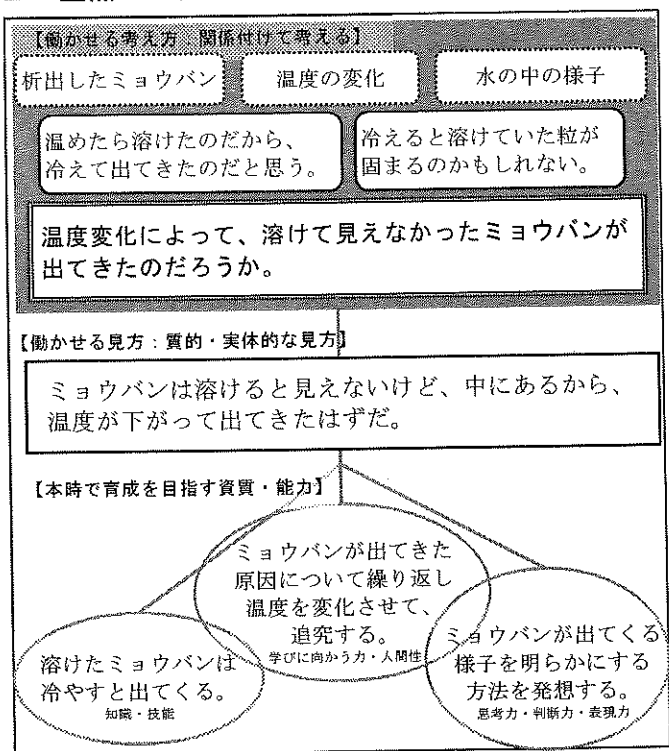 【働かせる考え方：関係付けて考える】
析出したミョウバン
温度の変化
水の中の様子
温めたら溶けたのだから、
冷えて出てきたのだと思う。
冷えると溶けていた粒が
固まるのかもしれない。
温度変化によって、溶けて見えなかったミョウバンが
出てきたのだろうか。
【働かせる見方：質的・実体的な見方】
ミョウバンは溶けると見えないけど、中にあるから、
温度が下がって出てきたはずだ。
【本時で育成を目指す資質・能力】
ミョウバンが出てきた
原因について繰り返し
温度を変化させて、
追究する。
学びに向かう力・人間性
溶けたミョウバンは
冷やすと出てくる。
知識・技能
ミョウバンが出てくる
様子を明らかにする
方法を発想する。
思考力・判断力・表現力